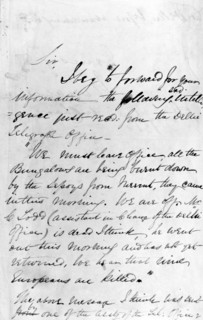 Sir,
I beg to forward for your
information the following Intelli-
gence just recd. from the Delhi
Telegraph Office.
"We must leave office, all the
Bungalows are being burnt down
by the Sepoys from Meerut, they came
in this morning. We are off. Mr
C Todd (assistant in charge of the Delhi
Office) is dead I think. he went
out this Morning and has not yet
returned, We hear that nine
Europeans are killed."
The above message I think was sent
from one of the